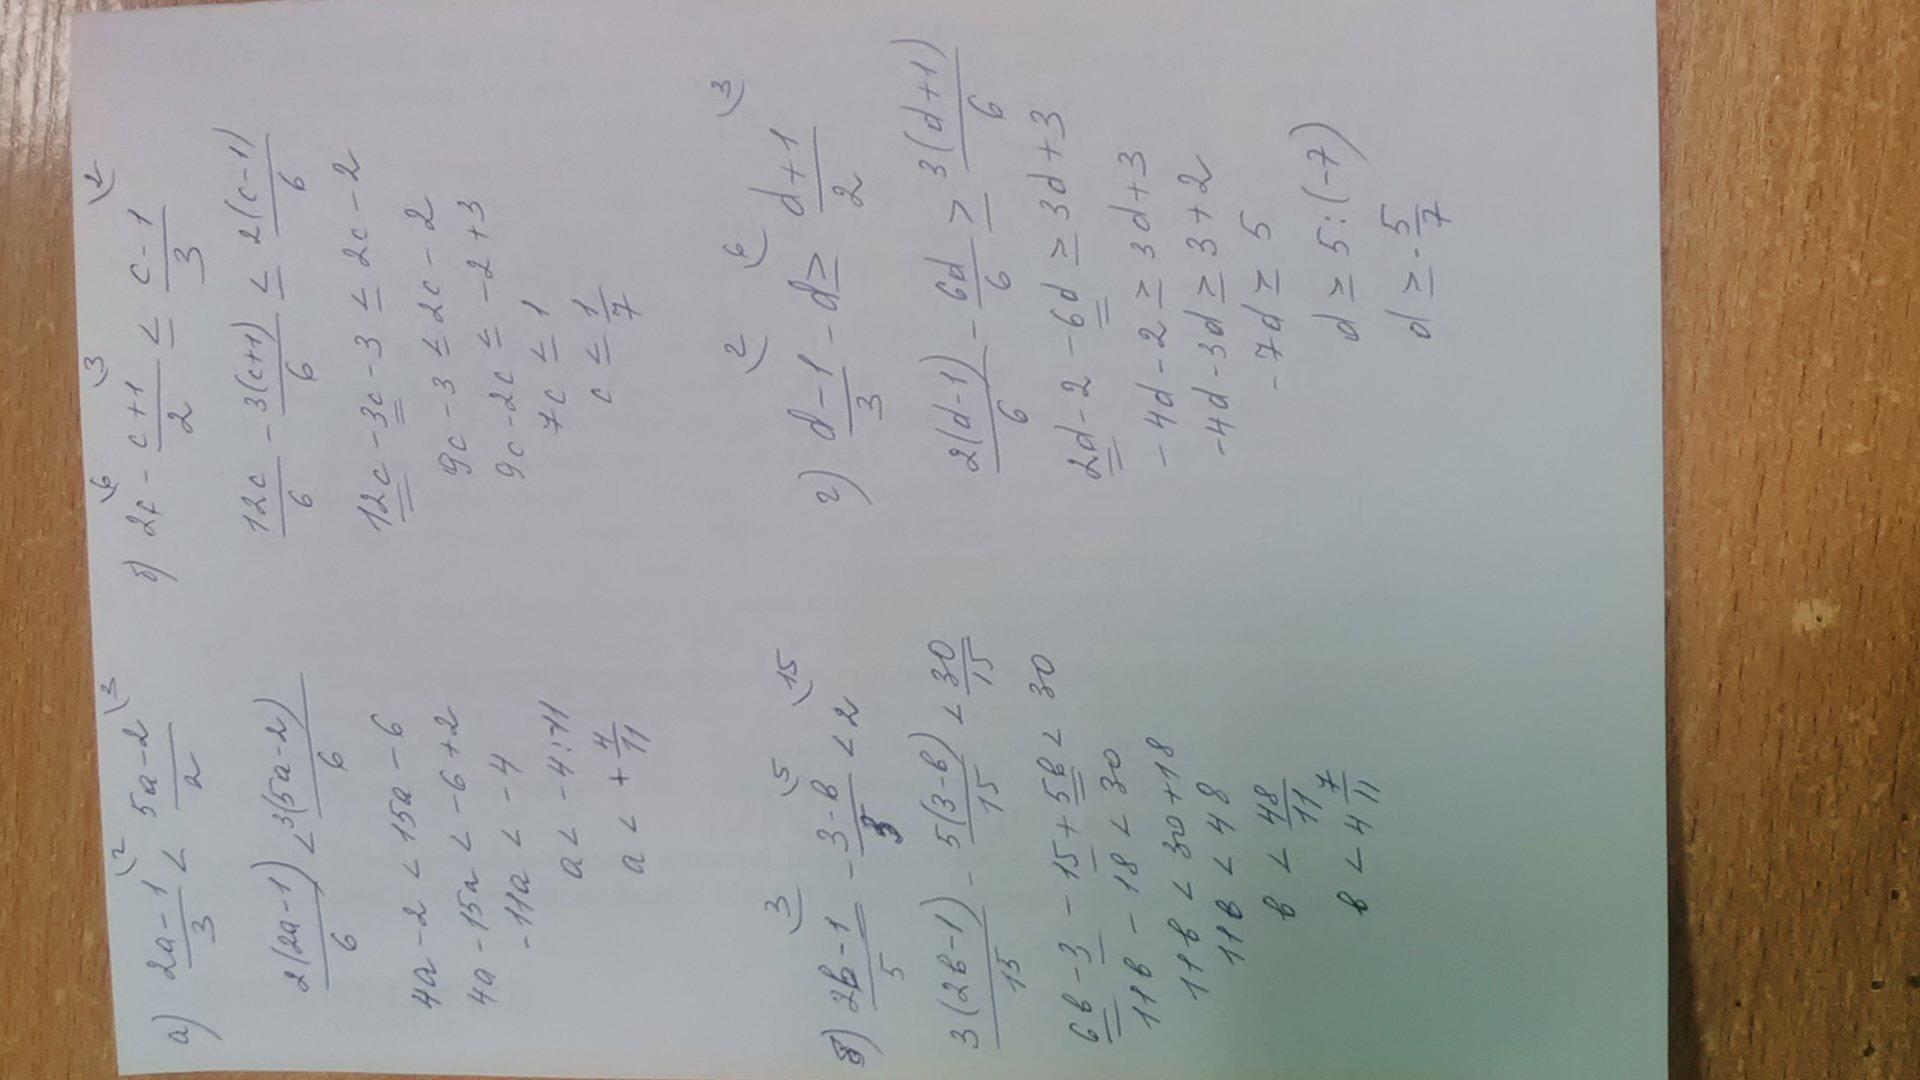 а) 2a-1/3 (2 < 5a-2/2 (3
2(2a-1)/6 < 3(5a-2)/6
4a-2 < 15a-6
4a-15a < -6+2
-11a < -4
a < -4:-11
a < +4/11
б) 2c (6 - c+1/2 (3 ≤ c-1/3 (2
12c/6 - 3(c+1)/6 ≤ 2(c-1)/6
12c - 3c - 3 ≤ 2c - 2
9c - 3 ≤ 2c - 2
9c - 2c ≤ -2+3
7c ≤ 1
c ≤ 1/7
в) 2в-1/5 (3 - 3-в/3 (5 < 2 (15
3(2в-1)/15 - 5(3-в)/15 < 30/15
6в - 3 - 15 + 5в < 30
11в - 18 < 30
11в < 30+18
11в < 48
в < 48/11
в < 4 7/11
г) d-1/3 (2 - d (6 ≥ d+1/2 (3
2(d-1)/6 - 6d/6 ≥ 3(d+1)/6
2d - 2 - 6d ≥ 3d+3
-4d - 2 ≥ 3d+3
-4d - 3d ≥ 3+2
-7d ≥ 5
d ≥ 5:(-7)
d ≥ -5/7